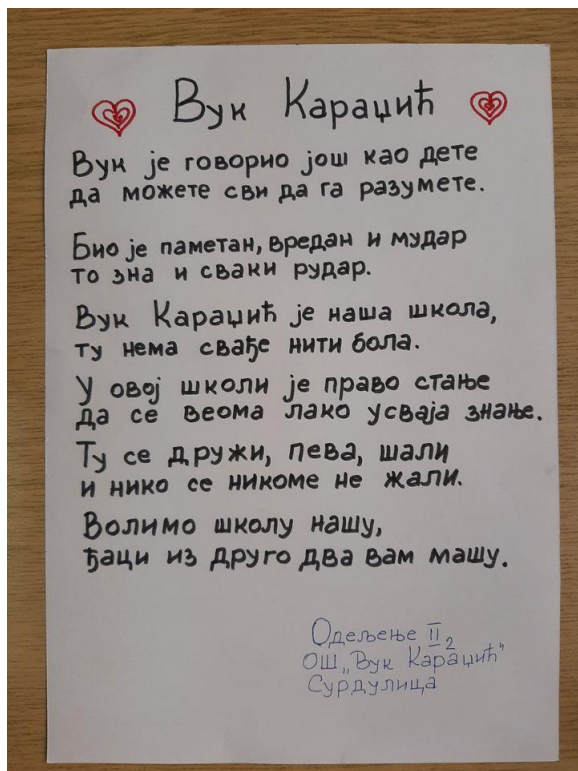 Вук Караџић
Вук је говорио још као дете
да можете сви да га разумете.
Био је паметан, вредан и мудар
то зна и сваки рудар.
Вук Караџић је наша школа,
ту нема свађе нити бола.
У овој школи је право стање
да се веома лако усваја знање.
Ту се дружи, пева, шали
и нико се никоме не жали.
Волимо школу нашу,
ђаци из друго два вам машу.
Одељење II2
ОШ „Вук Караџић"
Сурдулица